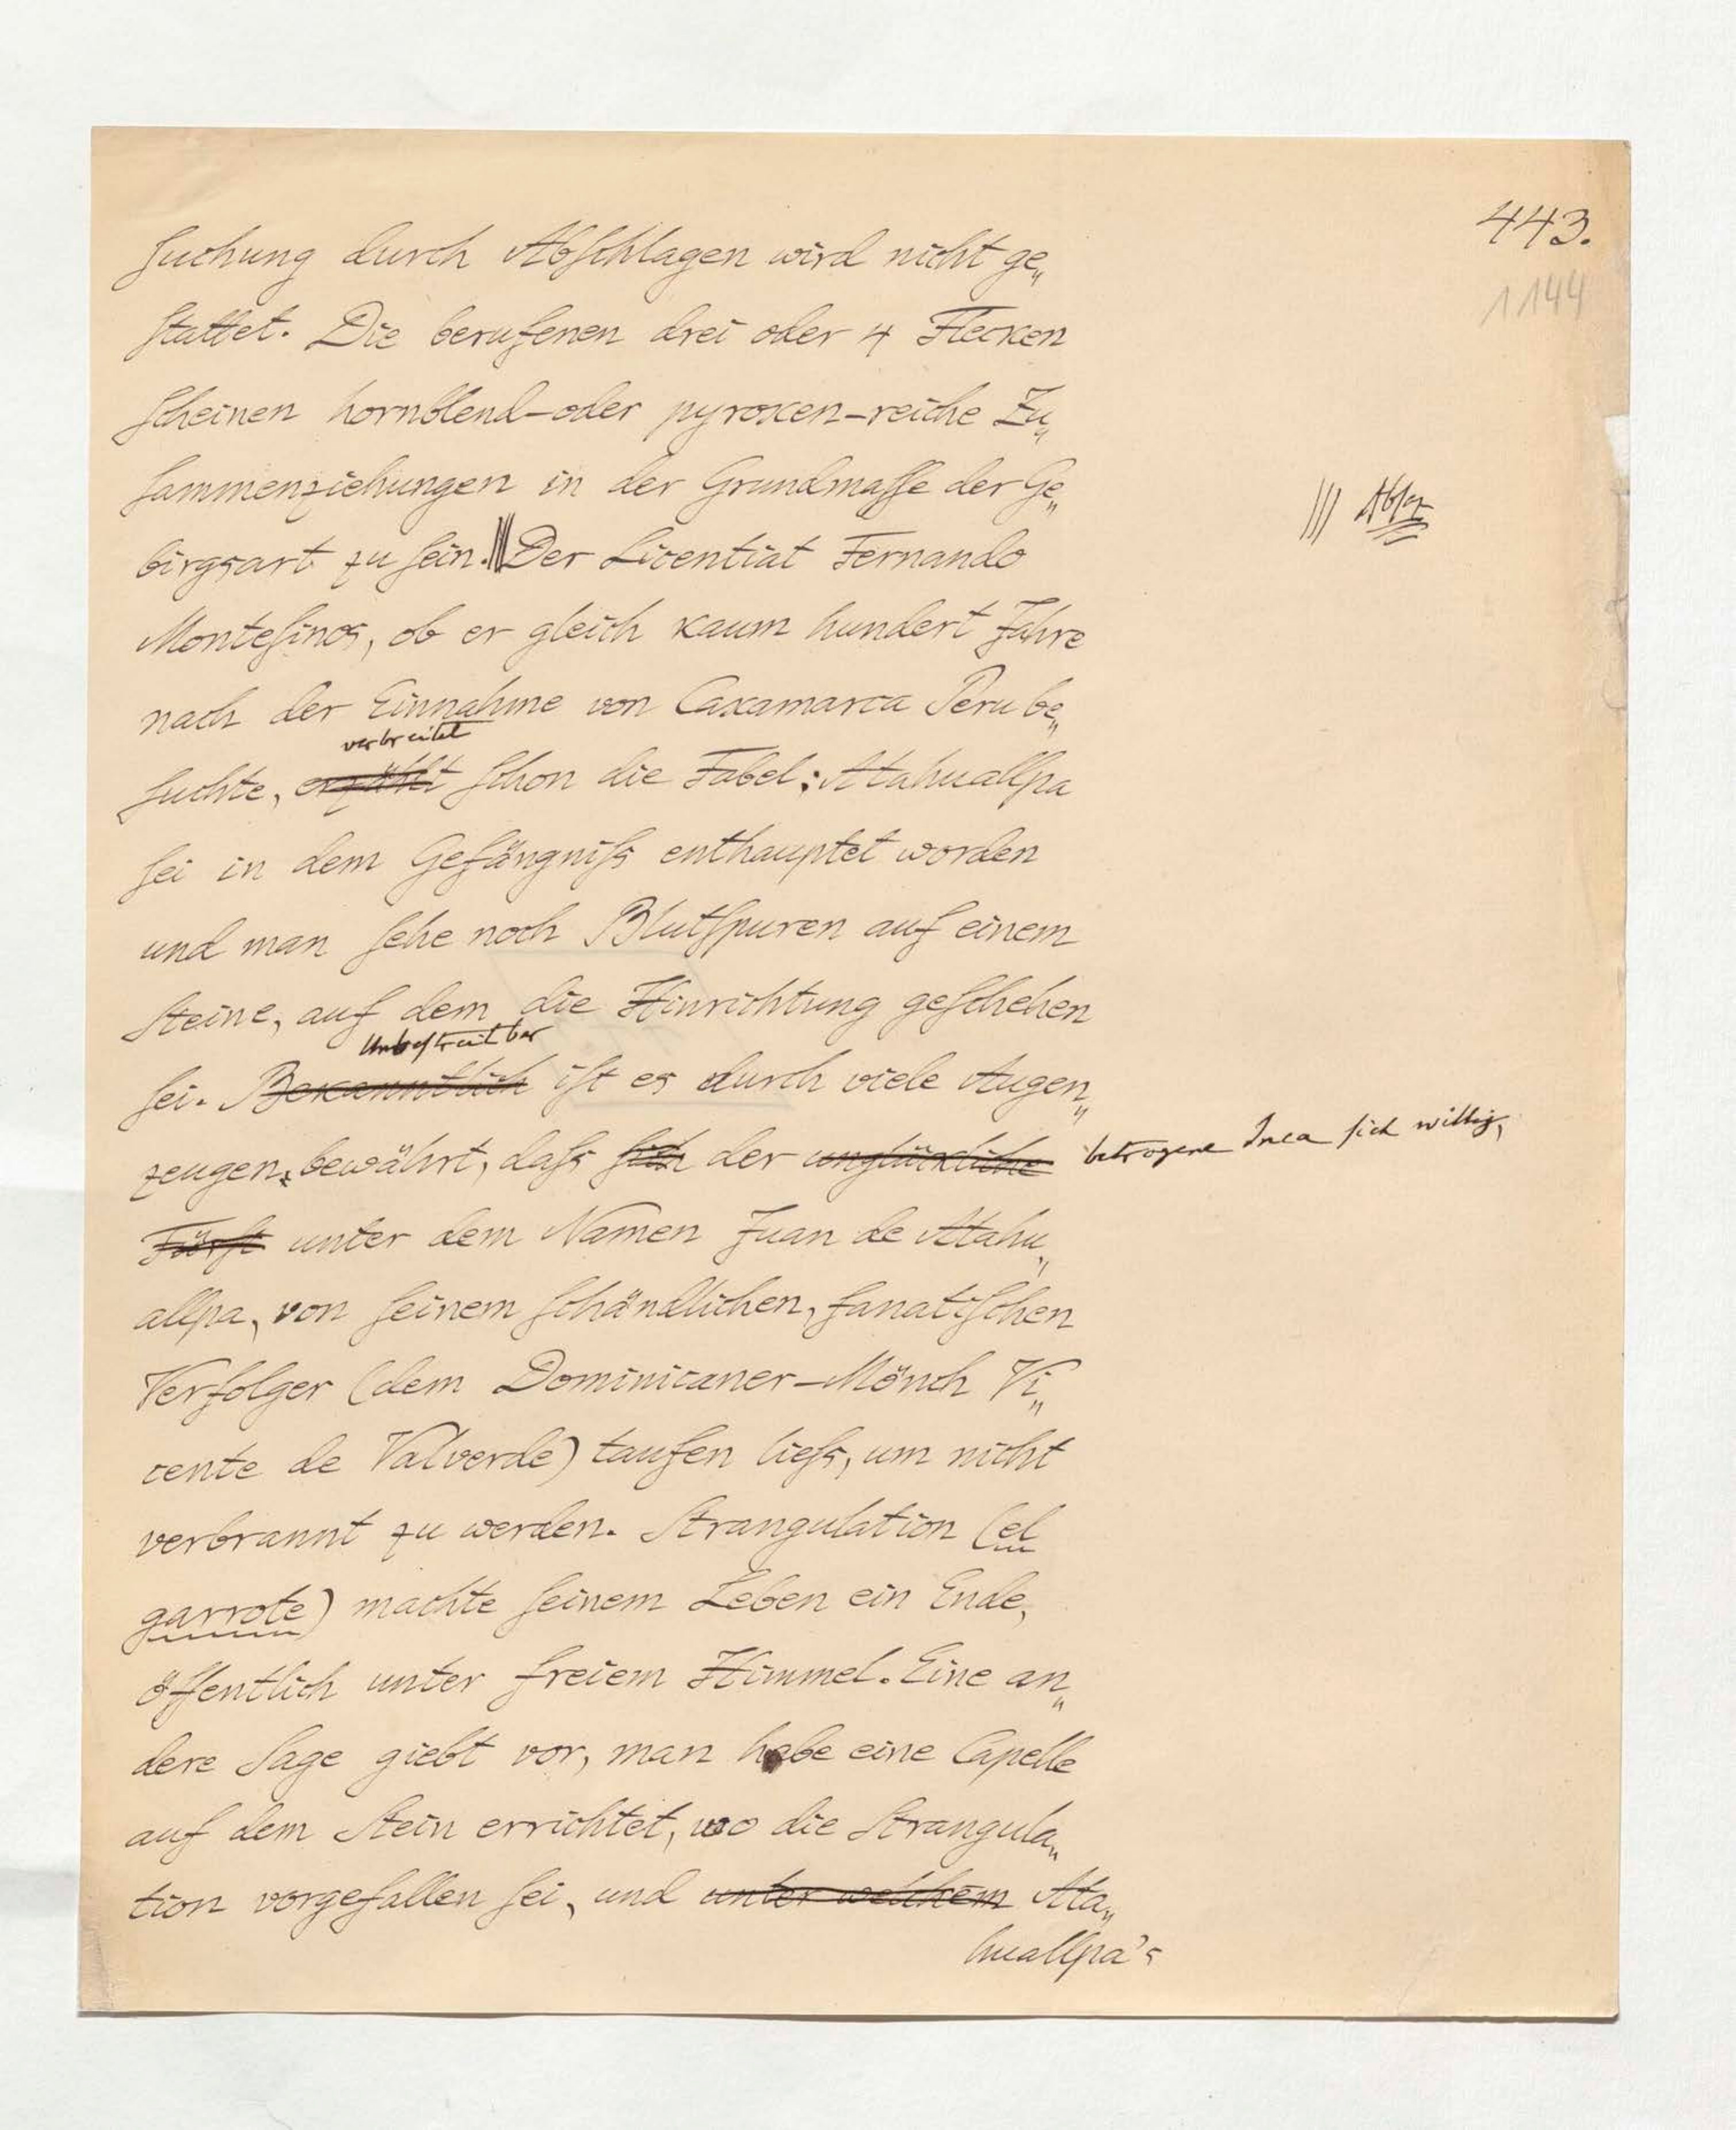 443.
1144
suchung durch Abschlagen wird nicht ge„
stattet. Die berufenen drei oder 4 Flecken
scheinen hornblend-oder pyroxen-reiche Zu„
sammenziehungen in der Grundmasse der Ge„
birgsart zu sein. ||| Der Licentiat Fernando
||| Absz
Montesinos, ob er gleich kaum hundert Jahre
nach der Einnahme von Caxamarca Peru be„
verbreitet
suchte, erzählt schon die Fabel: Atahuallpa
sei in dem Gefängniss enthauptet worden
und man sehe noch Blutspuren auf einem
Steine, auf dem die Hinrichtung geschehen
Unbestreitbar
sei. Bekanntlich ist es durch viele Augen„
zeugen, bewährt, dass sich der unglückliche betrogene Inca sich willig,
Fürst unter dem Namen Juan de Atahu„
allpa, von seinem schändlichen, fanatischen
Verfolger (dem Dominicaner-Mönch Vi„
cente de Valverde) taufen liess, um nicht
verbrannt zu werden. Strangulation (el
garrote) machte seinem Leben ein Ende,
öffentlich unter freiem Himmel. Eine an„
dere Sage giebt vor, man habe eine Capelle
auf dem Stein errichtet, wo die Strangula„
tion vorgefallen sei, und unter welchem Ata„
huallpa's